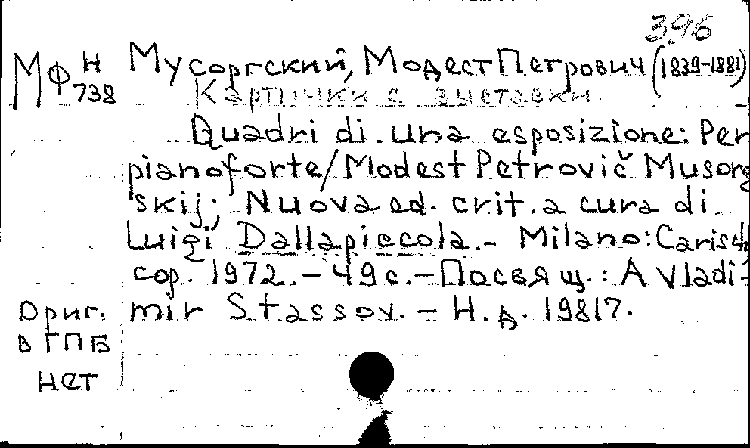 396
МФ Н 738 Мусоргский, Модест Петрович (1839-1881)
Картинки с выставки
Quadri di una esposizione: Per
pianoforte/Modest Petrovič Musorg
skij; Nuova ed. crit. a cura di
Luigi Dallapiccola.- Milano: Carisch
cop. 1972.-49с.-Посвящ.: A Vladi-
mir Stassov.-Н.д. 19817.
Ориг.
в ГПБ
нет